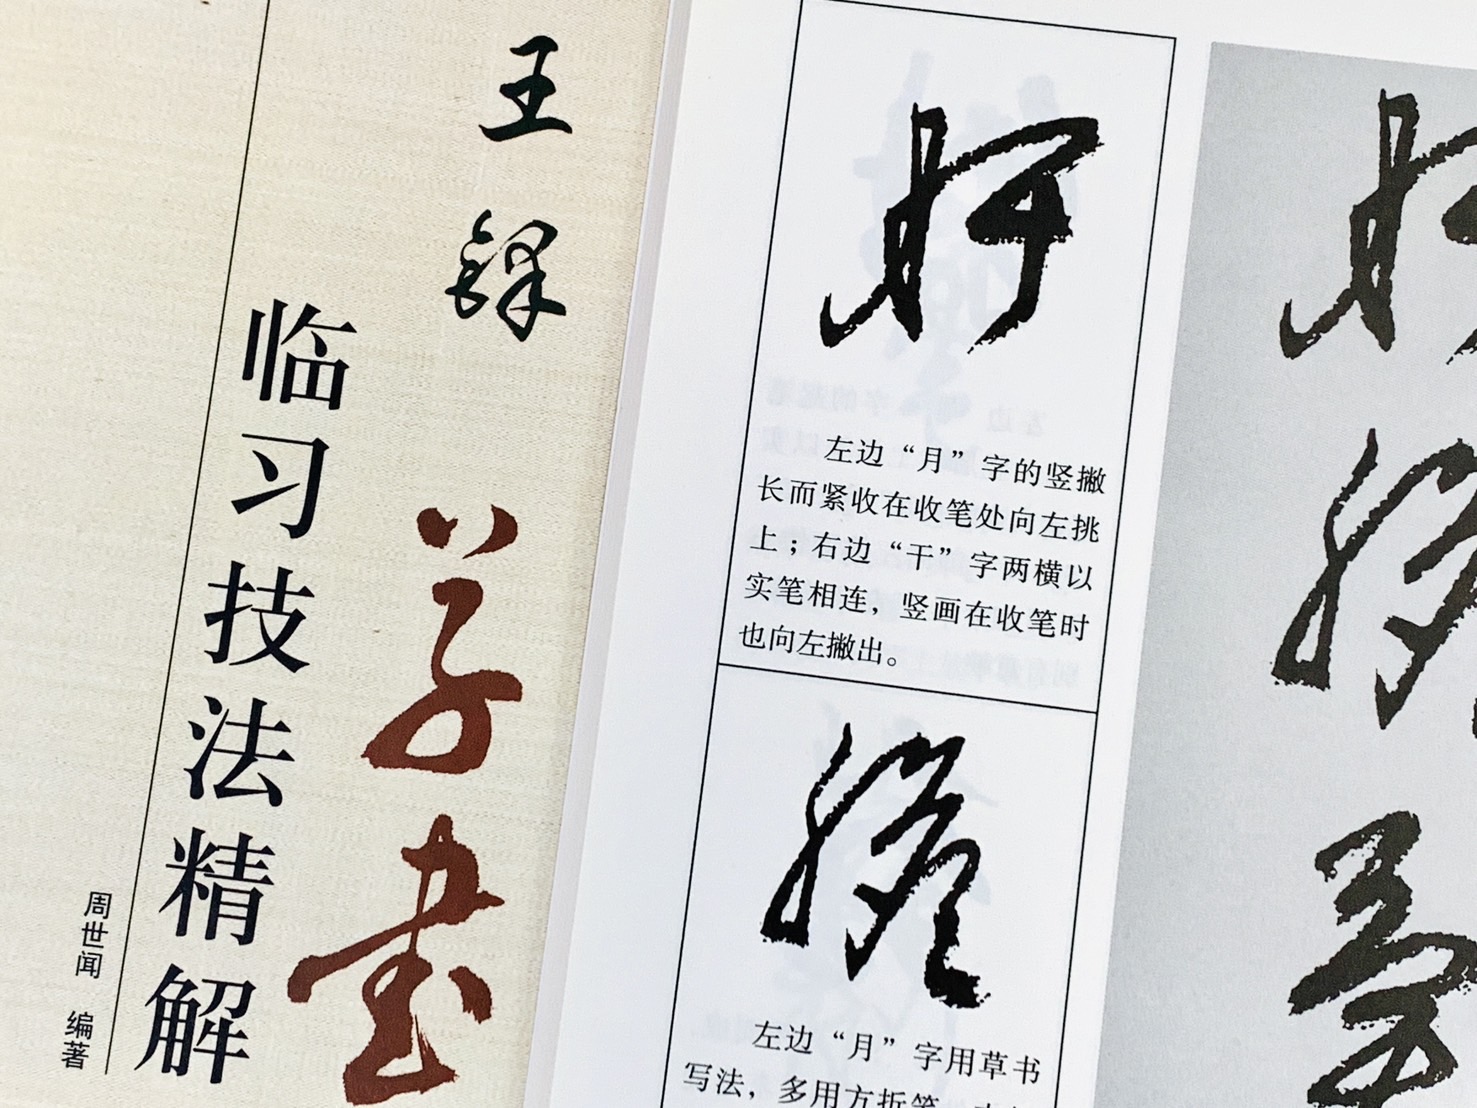 王铎
草书
临习技法精解
周世闻 编著
肝
左边“月”字的竖撇
长而紧收在收笔处向左挑
上；右边“干”字两横以
实笔相连，竖画在收笔时
也向左撇出。
胆
左边“月”字用草书
写法，多用方折笔，